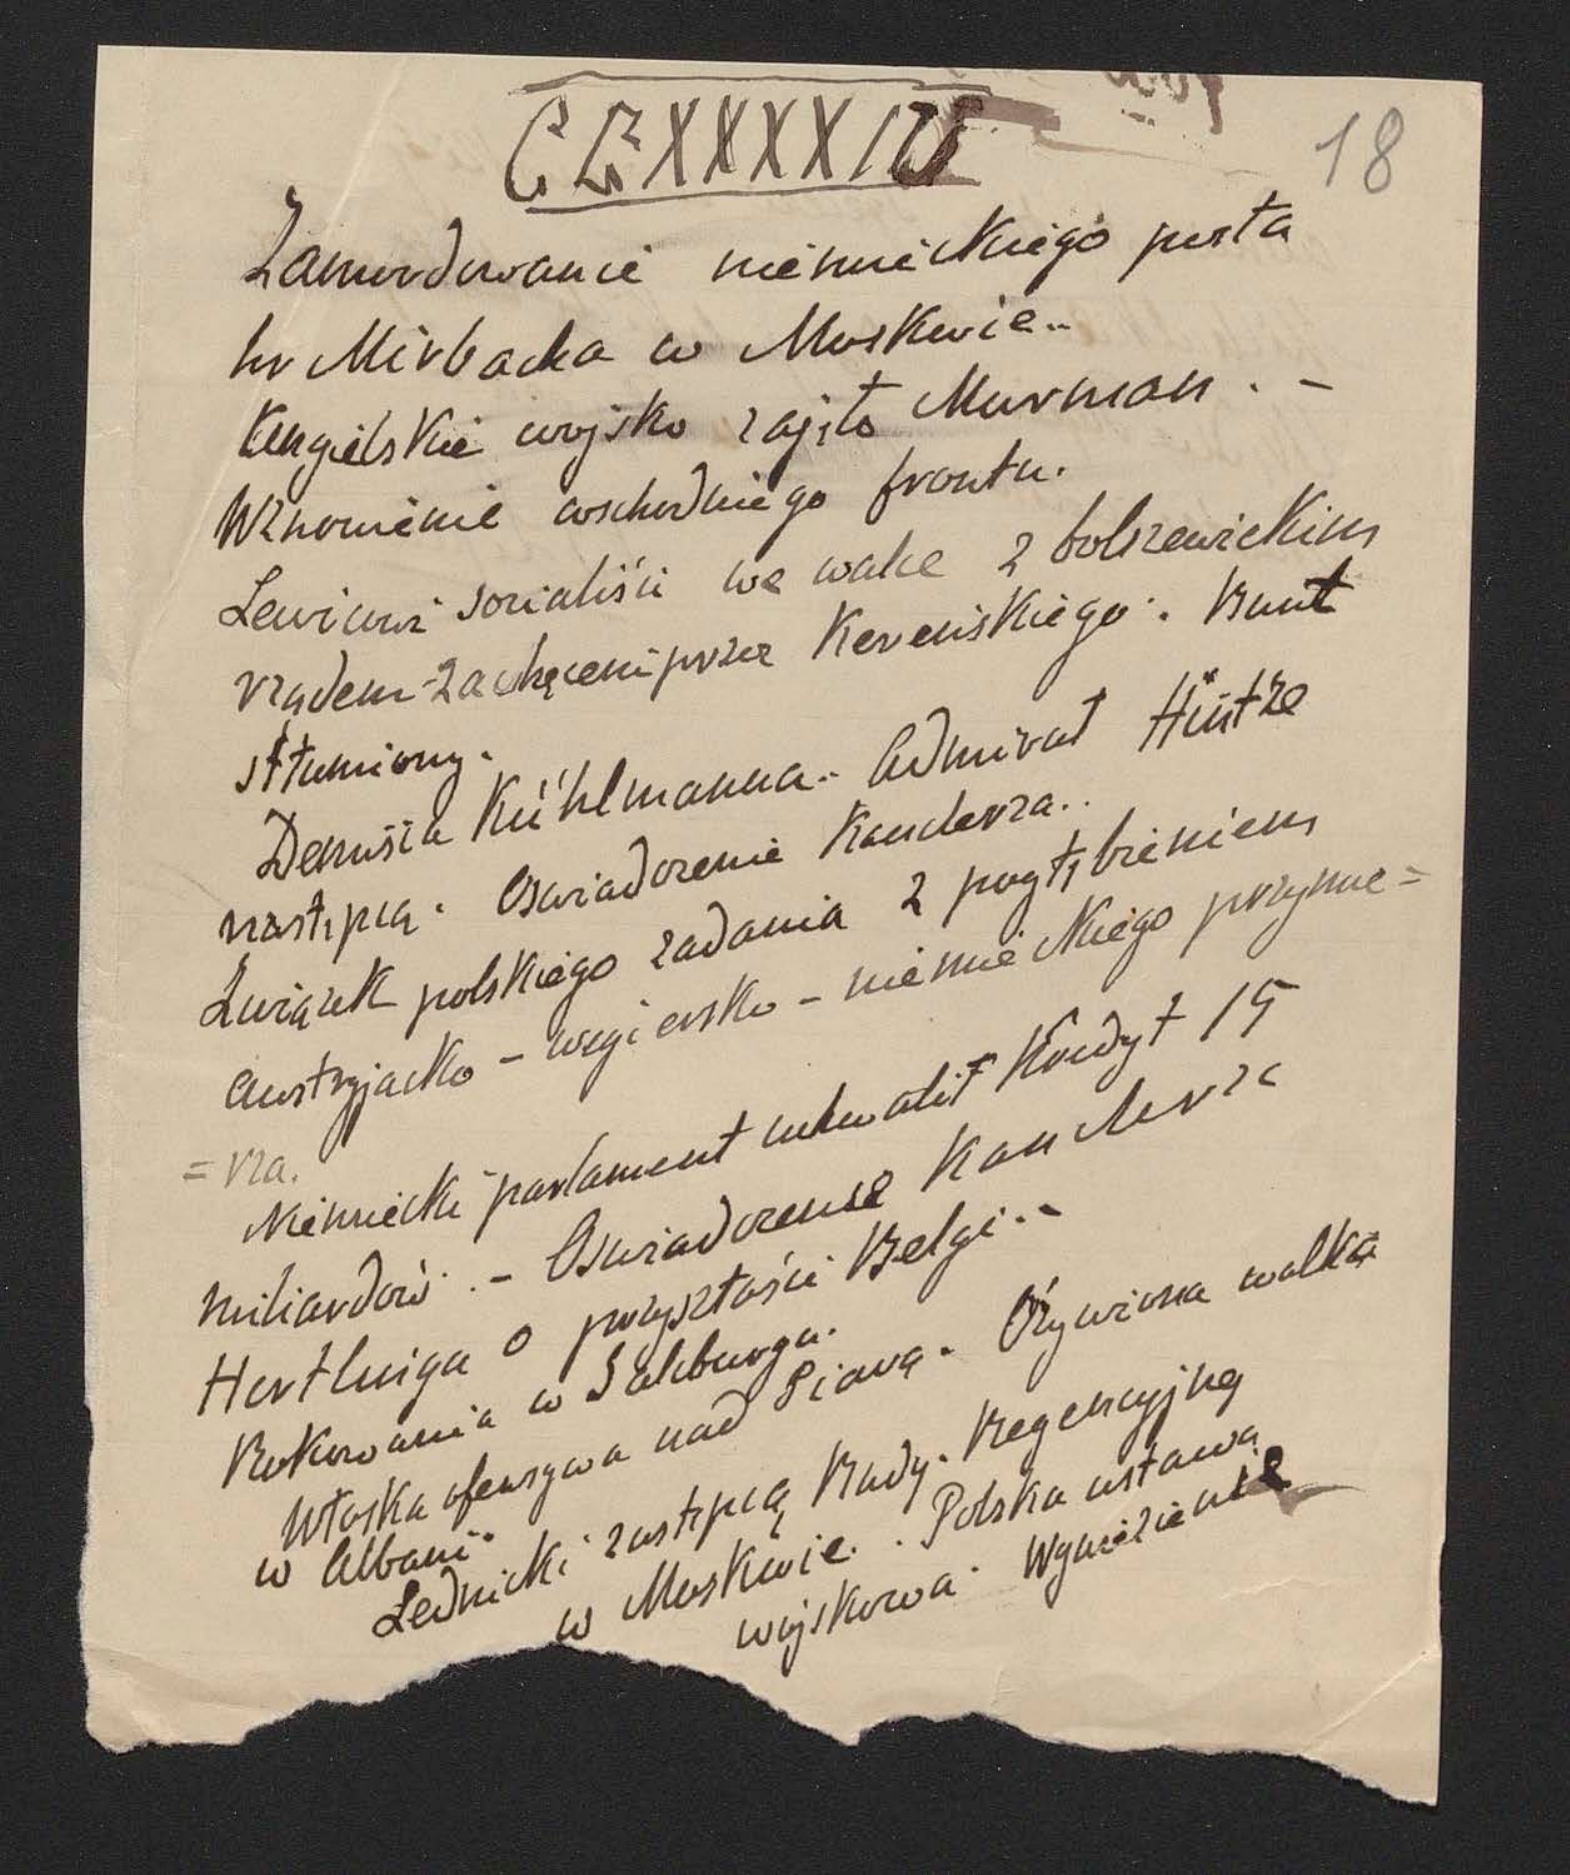 CCXXXXIV
18
Zamordowanie niemieckiego posła
hr Mirbacha w Moskwie..
Angielskie wojsko zajęło Murman. -
Wznowienie wschodniego frontu.
Lewicowi socialiści we walce z bolszewickim
rządem zachęceni przez Kereńskiego. Bunt
stłumiony.
Demisia Kühlmanna.. Admirał Hintze
następcą. Oswiadczenie Kanclerza..
Związek polskiego zadania z pogłębieniem
austryjacko - wegiersko - niemieckiego przymie=
=rza.
Niemiecki parlament uchwalił Kredyt 15
miliardów. - Oswiadczenie Kanclerza
Hertlinga o przyszłości Belgi. -
Rokowania w Salzburgu.
Włoska ofensywa nad Piavą. Ożywiona walka
w Albani.
Lednicki zastępcą Rady Regencyjną
w Moskwie. . Polska ustawa
wojskowa. Wywiezienie